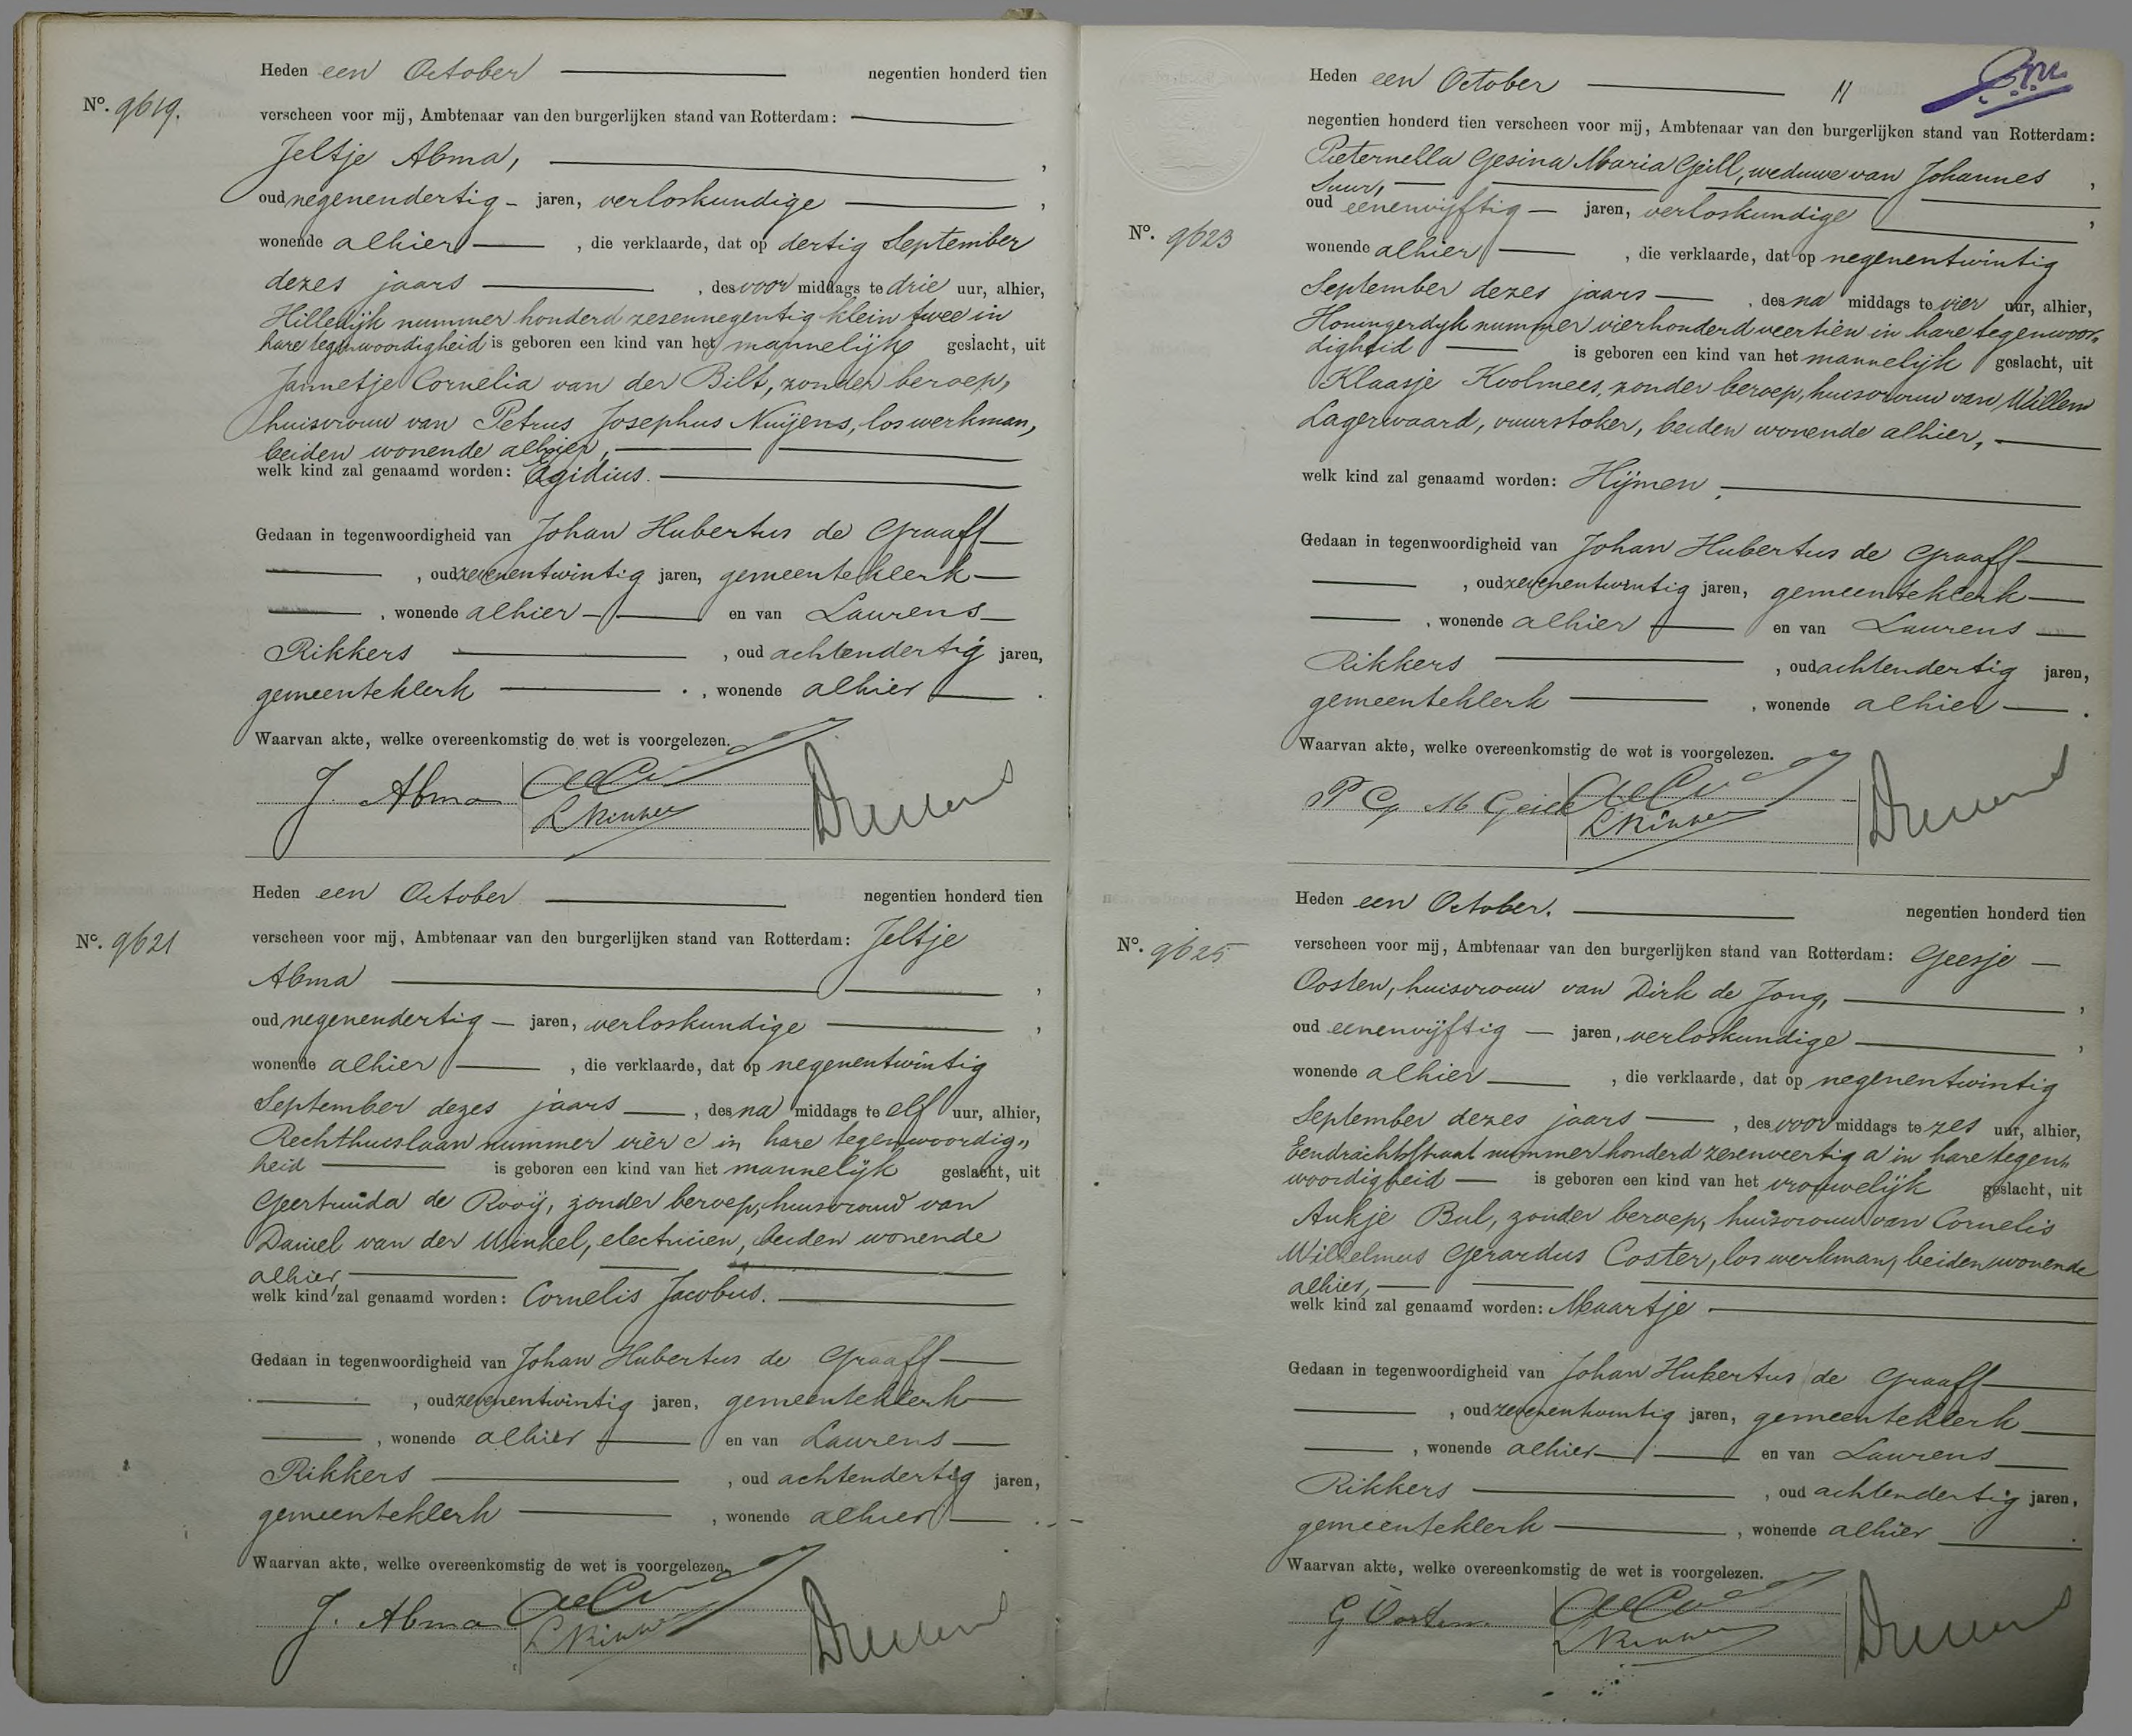 Heden een October negentien honderd tien
No. 9619.
verscheen voor mij, Ambtenaar van den burgerlijken stand van Rotterdam:
Jeltje Abma, ,
oud negenendertig jaren, verloskundige ,
wonende alhier , die verklaarde, dat op dertig September
dezes jaars , des voor middags te drie uur, alhier,
Hilledijk nummer honderd zesennegentig klein twee in
hare tegenwoordigheid is geboren een kind van het mannelijk geslacht, uit
Jannetje Cornelia van der Bilt, zonder beroep,
huisvrouw van Petrus Josephus Nuijens, los werkman,
beiden wonende alhier,
welk kind zal genaamd worden: Egidius.
Gedaan in tegenwoordigheid van Johan Hubertus de Graaff
, oud zevenentwintig jaren, gemeenteklerk
, wonende alhier en van Laurens
Rikkers , oud achtendertig jaren,
gemeenteklerk , wonende alhier .
Waarvan akte, welke overeenkomstig de wet is voorgelezen.
J. Abma
Heden een October negentien honderd tien
No. 9621
verscheen voor mij, Ambtenaar van den burgerlijken stand van Rotterdam: Jeltje
Abma ,
oud negenendertig jaren, verloskundige ,
wonende alhier , die verklaarde, dat op negenentwintig
September dezes jaars , des na middags te elf uur, alhier,
Rechthuislaan nummer vier c in hare tegenwoordig„
heid is geboren een kind van het mannelijk geslacht, uit
Geertruida de Rooij, zonder beroep, huisvrouw van
Daniel van der Winkel, electricien, beiden wonende
alhier,
welk kind zal genaamd worden: Cornelis Jacobus.
Gedaan in tegenwoordigheid van Johan Hubertus de Graaff
, oud zevenentwintig jaren, gemeenteklerk
, wonende alhier en van Laurens
Rikkers , oud achtendertig jaren,
gemeenteklerk , wonende alhier .
Waarvan akte, welke overeenkomstig de wet is voorgelezen.
J. Abma
Heden een October 11
negentien honderd tien verscheen voor mij, Ambtenaar van den burgerlijken stand van Rotterdam:
Pieternella Gesina Maria Geill, weduwe van Johannes ,
Suur,
oud eenenvijftig jaren, verloskundige ,
No. 9623
wonende alhier , die verklaarde, dat op negenentwintig
September dezes jaars , des na middags te vier uur, alhier,
Honingerdyk nummer vierhonderd veertien in hare tegenwoor„
digheid is geboren een kind van het mannelijk geslacht, uit
Klaasje Koolmees, zonder beroep, huisvrouw van Willem
Lagerwaard, vuurstoker, beiden wonende alhier,
welk kind zal genaamd worden: Hijmen.
Gedaan in tegenwoordigheid van Johan Hubertus de Graaff
, oud zevenentwintig jaren, gemeenteklerk
, wonende alhier en van Laurens
Rikkers , oud achtendertig jaren,
gemeenteklerk , wonende alhier .
Waarvan akte, welke overeenkomstig de wet is voorgelezen.
P G M Geill
Heden een October. negentien honderd tien
No. 9625
verscheen voor mij, Ambtenaar van den burgerlijken stand van Rotterdam: Geesje
Oosten, huisvrouw van Dirk de Jong, ,
oud eenenvijftig jaren, verloskundige ,
wonende alhier , die verklaarde, dat op negenentwintig
September dezes jaars , des voor middags te zes uur, alhier,
Eendrachtstraat nummer honderd zesenveertig a in hare tegen„
woordigheid is geboren een kind van het vrouwelijk geslacht, uit
Aukje Bul, zonder beroep, huisvrouw van Cornelis
Wilhelmus Gerardus Coster, los werkman, beiden wonende
alhier,
welk kind zal genaamd worden: Maartje.
Gedaan in tegenwoordigheid van Johan Hubertus de Graaff
, oud zevenentwintig jaren, gemeenteklerk
, wonende alhier en van Laurens
Rikkers , oud achtendertig jaren,
gemeenteklerk , wonende alhier .
Waarvan akte, welke overeenkomstig de wet is voorgelezen.
G Oosten.